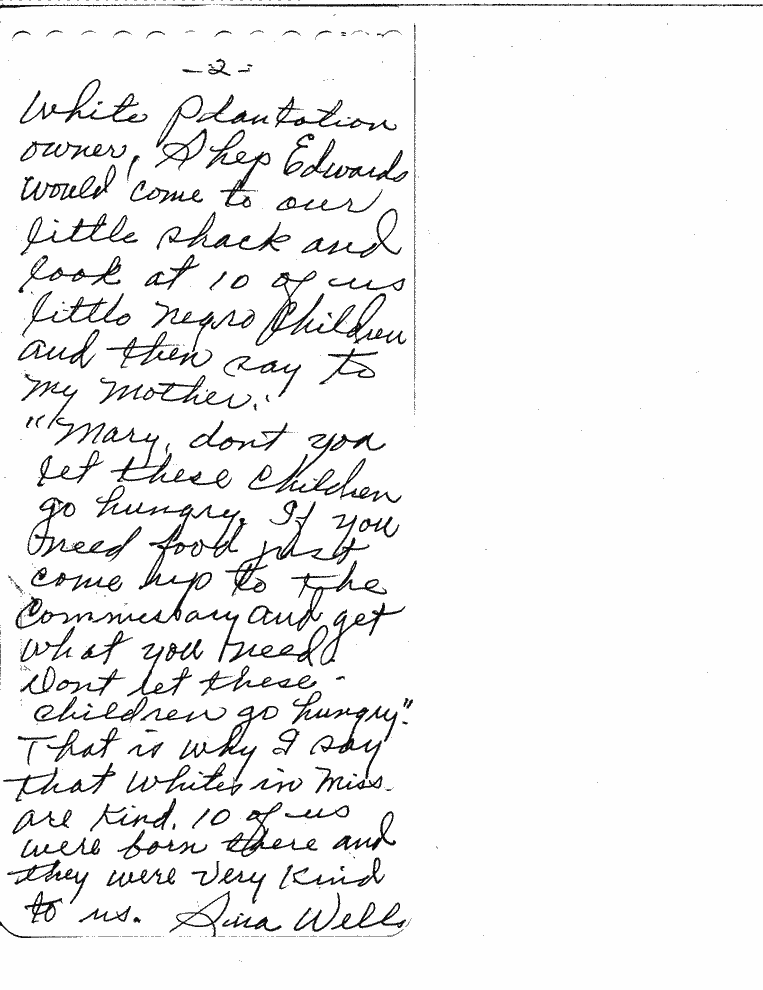 -2-
White Plantation
owner, Shep Edwards
would come to our
little shack and
look at 10 of us
little negro Children
and then say to
my mother:
"Mary, dont you
let these children
go hungry. If you
need food just
come up to the
Commissary and get
what you need.
Dont let these -
children go hungry."
That is why I say
that whites in Miss.
are kind. 10 of us
were born there and
they were very kind
to us. Wells